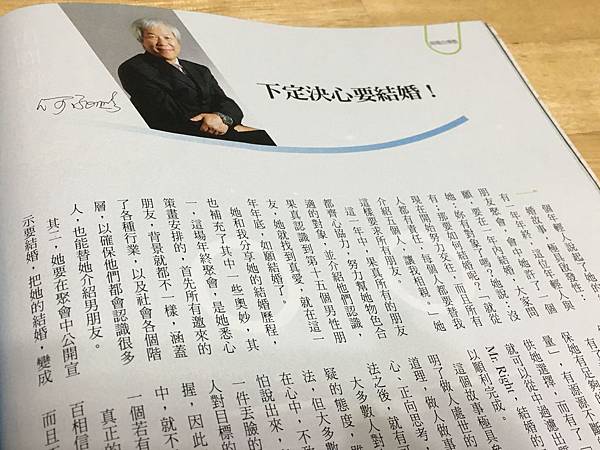 下定決心要結婚！
個年輕人說起了她的
婚故事，極具啟發性：
有一年年終，這位年輕人與
朋友聚會，會中她許了一個
願，要在一年內結婚。大家問
她：「妳有對象嗎？」她說：「沒
有。」「那要如何結婚呢？」「就從
現在開始努力交往，而且所有
人都有責任，每個人都要替我
介紹五個人，讓我相親。」她
這樣要求所有的朋友。
這一年中，果真所有的朋友
都齊心協力，努力幫她物色合
適的對象，並介紹他們認識，
果真認識到第十五個男性朋
友，她就找到真愛，就在這一
年年底，如願結婚了。
她和我分享她的結婚歷程，
也補充了其中一些奧妙，其
一，這場年終聚會，是她悉心
策畫安排的，首先所有邀來的
朋友，背景就都不一樣，涵蓋
了各種行業，以及社會各個階
層，以確保他們都會認識很多
人，也能替她介紹男朋友。
其二，她要在聚會中公開宣
示要結婚，把她的結婚，變成
保她有源源不斷的
量」，有了
供她選擇，而有了
就可以從中過濾出
Mr. Right
以順利完成。
這個故事極具
明了做人
道理，做人做事
心、正向思考，
法之後，就有可
大多數人對
疑的態度，雖
法，但大多數
在心中，不敢
怕說出來，
一件丟臉的
人對目標的
握，因此
中，就不
一個若有
真正的
百相信
而且